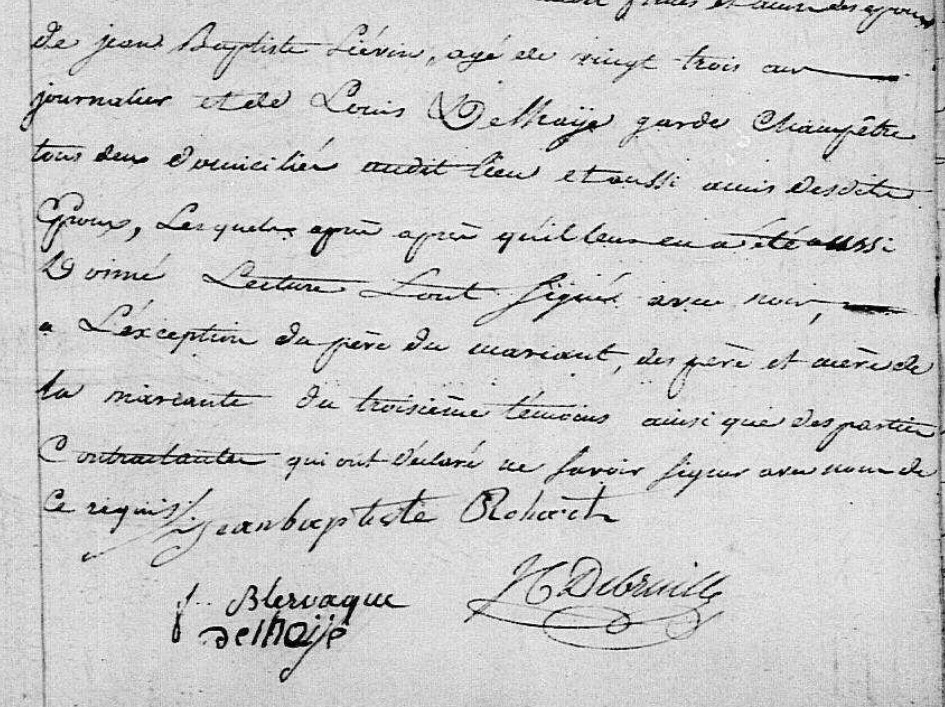 et amis des epoux
de jean Baptiste Liévin, agé de vingt trois ans
journalier et de Louis Delhaÿe garde Champêtre
tous deux domiciliés audit lieu et aussi amis desdits
Epoux, Lesquels après après qu'il leur en a été aussi
Donné Lecture L'ont signé avec nous,
a L'exception du père du mariant, des père et mère de
la mariante du troisième témoins ainsi que des parties
Contractantes qui ont déclaré ne savoir signer avec nous de
ce requis
jeanbaptiste Rohart
f. Blervaque
delhaije
Debruille